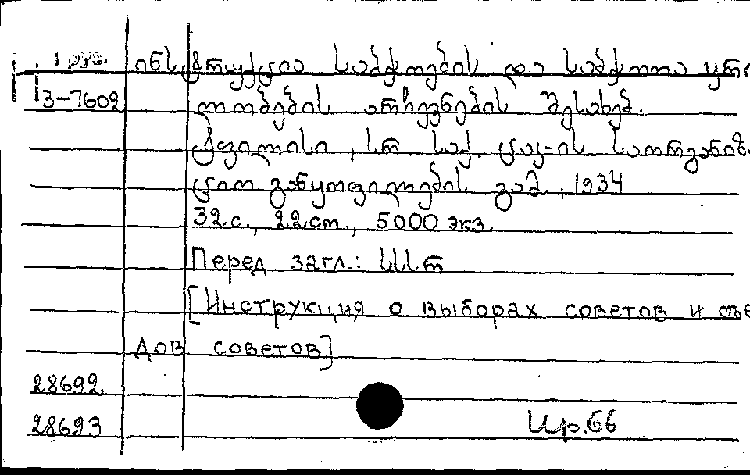 1 груз. ინსტრუქცია საბჭოების და საბჭოთა ყრი
3-7602 ლობების არჩევნების შესახებ.
ტფილისი, სრ საქ. ცაკ-ის საორგანიზა
ციო განყოფილების გამ., 1934
32 с., 22 см, 5000 экз.
Перед загл.: სსრ
[Инструкция о выборах советов и съез
дов советов]
28692
28693 Ир.66